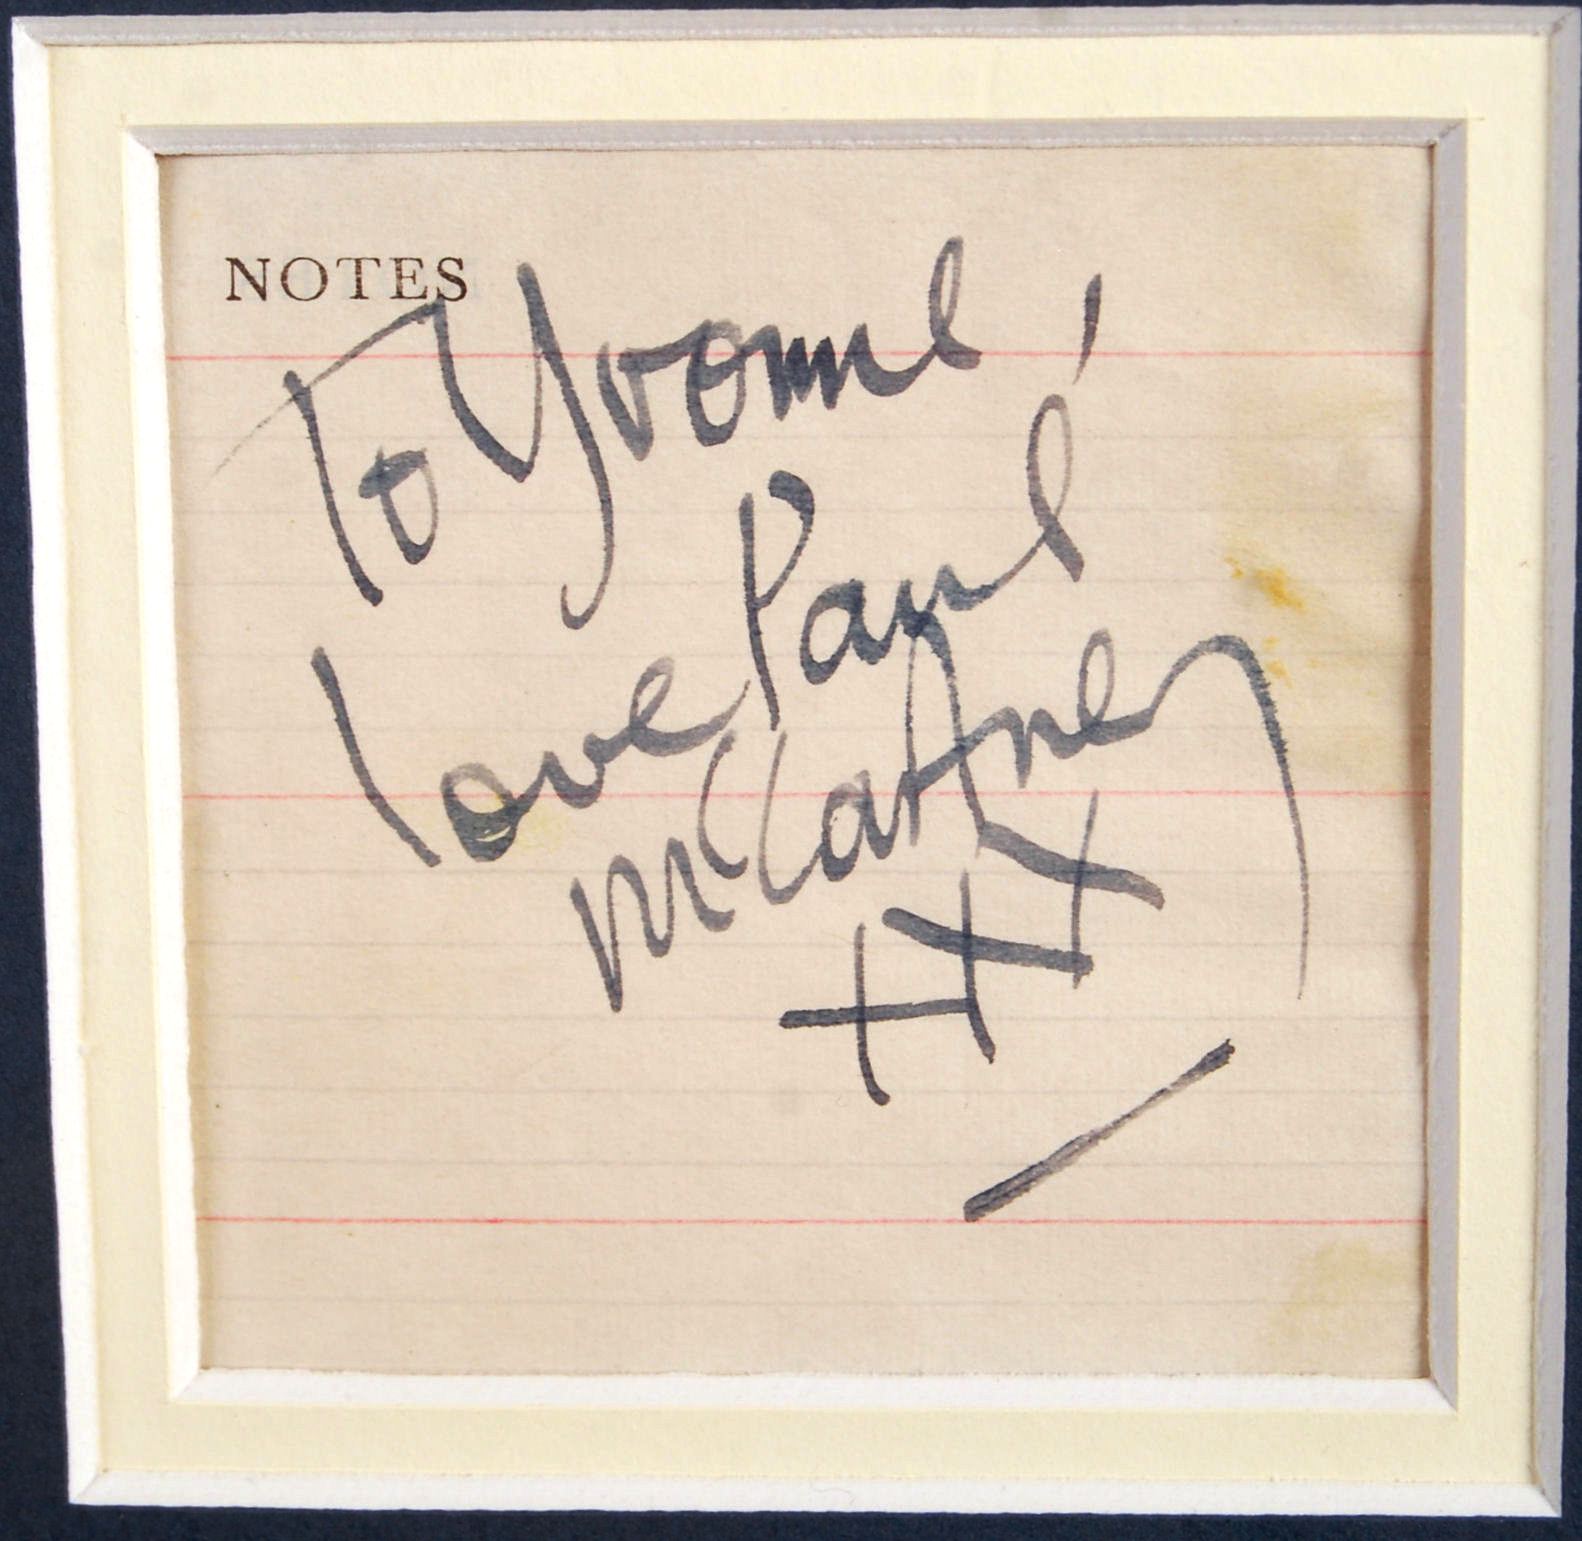 NOTES
To Yvonne,
love Paul
McCartney
XXX